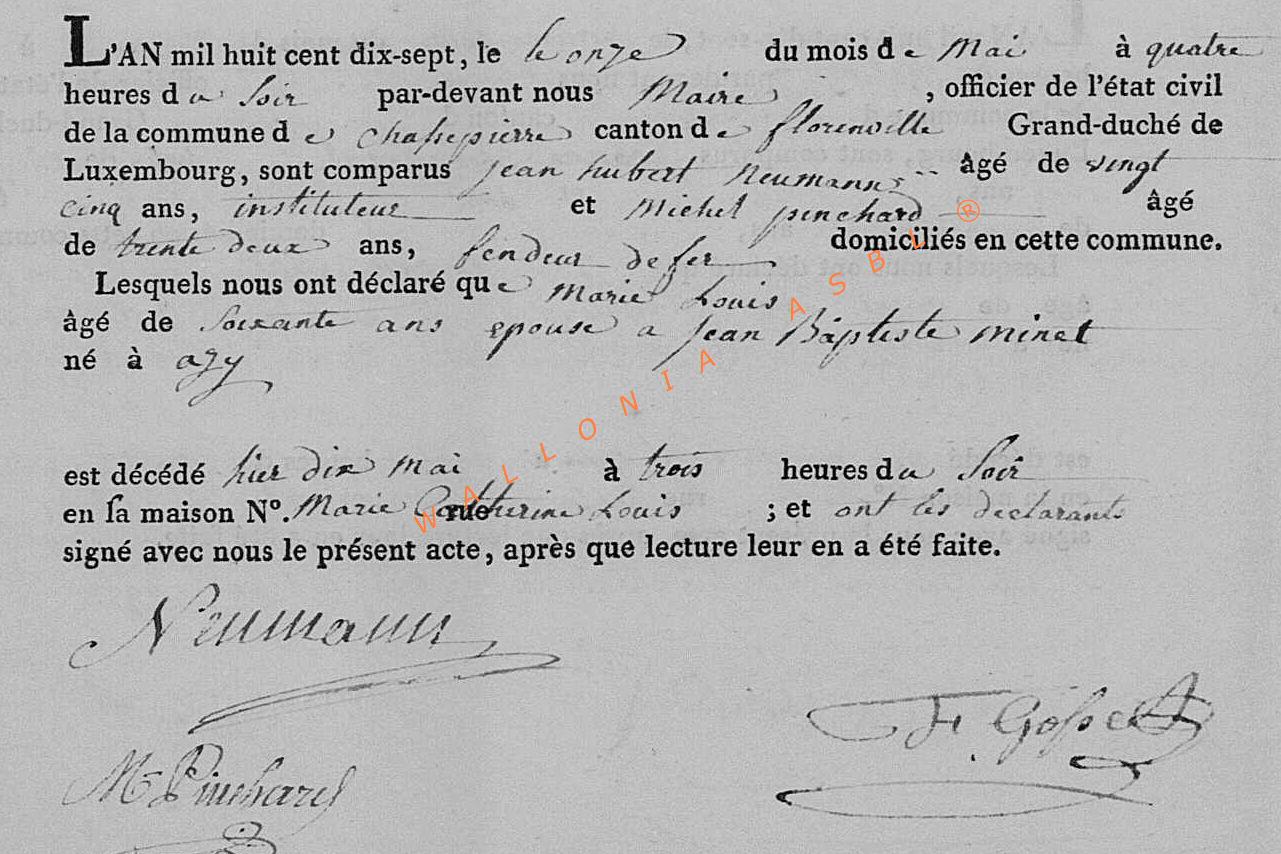 L'AN mil huit cent dix-sept, le le onze du mois de Mai à quatre
heures du Soir par-devant nous Maire, officier de l'état civil
de la commune de Chassepierre canton de florenville Grand-duché de
Luxembourg, sont comparus jean hubert Neumann âgé de vingt
cinq ans, instituteur et Michel pinchard âgé
de trente deux ans, fendeur de fer domiciliés en cette commune.
Lesquels nous ont déclaré que Marie Louis
âgé de Soixante ans epouse a jean Baptiste minet
né à azy
est décédé hier dix mai à trois heures du Soir
en sa maison N°. Marie Catherine rue Louis ; et ont les declarants
signé avec nous le présent acte, après que lecture leur en a été faite.
Neumann
H Gosset
M Pinchard
WALLONIA ASBL ®